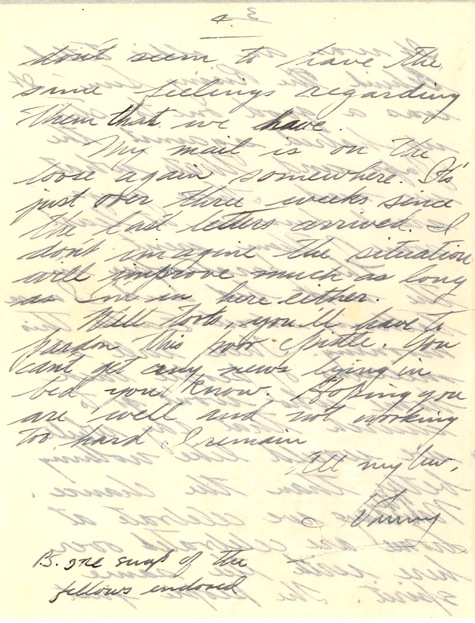 4
don't seem to have the
same feelings regarding
them that we have.
My mail is on the
loose again somewhere. It's
just over three weeks since
the last letters arrived. I
don't imagine the situation
will improve much as long
as I'm in here either.
Well Toots, you'll have to
pardon this poor epistle. You
can't get any news lying in
bed you know. Hoping you
are well and not working
too hard I remain
All my luv,
P.S. one snap of the
fellows enclosed